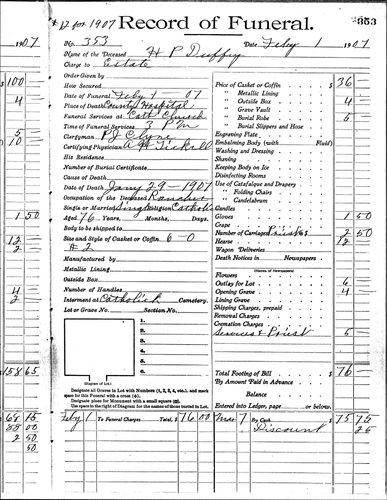 # 12 for 1907 Record of Funeral. 353
1907
No. 353 Date Feby 1 1907
Name of the Deceased H P Duffy
Charge to Estate
Order Given by
How Secured
Date of Funeral Feby 1 07
Place of Death County Hospital
Funeral Services at Cath Church
Time of Funeral Services 2 P M
Clergyman P J Clyne
Certifying Physician
His Residence
Number of Burial Certificate
Cause of Death
Date of Death Jany 29-1907
Occupation of the Deceased Rancher
Single or Married Single Religion Catholic
Aged 76 Years, Months, Days.
Body to be shipped to
Size and Style of Casket or Coffin 6-0
# 2
Manufactured by
Metallic Lining
Outside Box
Number of Handles
Interment at Catholick Cemetery
Lot or Grave No. Section No.
1.
2.
3.
4.
5.
6.
(Diagram of Lot.)
Designate all Graves in Lot with Numbers (1, 2, 3, 4, etc.), and mark
space for this Funeral with a cross (x).
Designate place for Monument with a small square (□).
Use space to the right of Diagram for the names of those buried in Lot.
Price of Casket or Coffin $ 36
" Metallic Lining
" Outside Box 4
" Grave Vault
" Burial Robe 5
" Burial Slippers and Hose
Engraving Plate
Embalming Body (with Fluid)
Washing and Dressing
Shaving
Keeping Body on Ice
Disinfecting Rooms
Use of Catafalque and Drapery
" Folding Chairs
" Candelabrum
Candles
Gloves 1 50
Crape
Number of Carriages Priest 2 50
Hearse 12
Wagon Deliveries
Death Notices in Newspapers
(Names of Newspapers)
Flowers
Outlay for Lot 6
Opening Grave 4
Lining Grave
Shipping Charges, prepaid
Removal Charges
Cremation Charges
Services & Priest 5
Total Footing of Bill $ 76
By Amount Paid in Advance
Balance
Entered into Ledger, page or below.
Feby 1 To Funeral Charges Total, $ 76 00 Mar 7 By Cash $ 75 75
Discount 25
100
4
5
10
1 50
12
2
4
2
158 65
68 15
88 00
2 50
50